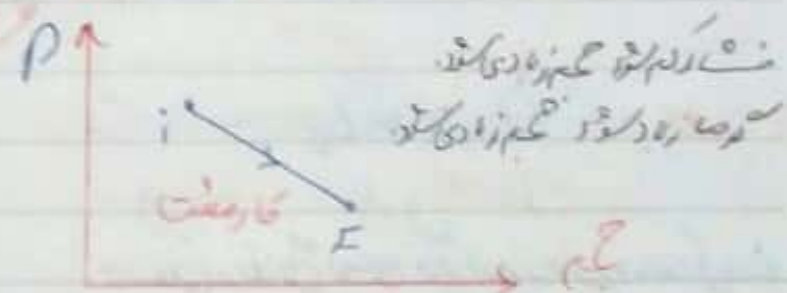 P
فشار کم شود حجم زیاد می‌شود.
گرما زیاد شود حجم زیاد می‌شود.
i
کار مثبت
F
حجم